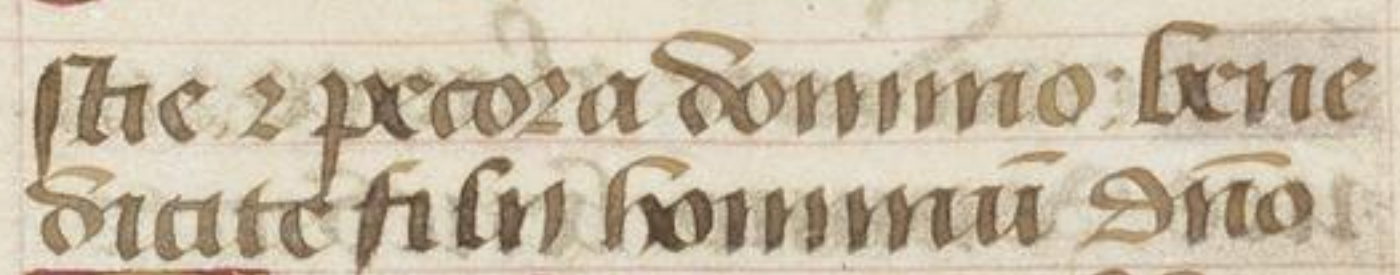 stie ⁊ pecora domino: bene
dicite filij hominū dn̄o